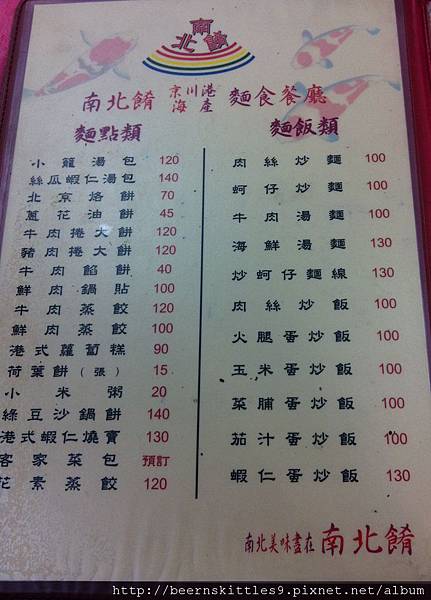 南北餚
南北餚 京川港海產 麵食餐廳
麵點類
小籠湯包 120
絲瓜蝦仁湯包 140
北京烙餅 70
蔥花油餅 45
牛肉捲大餅 120
豬肉捲大餅 120
牛肉餡餅 40
鮮肉鍋貼 100
牛肉蒸餃 120
鮮肉蒸餃 100
港式蘿蔔糕 90
荷葉餅(張) 15
小米粥 20
綠豆沙鍋餅 140
港式蝦仁燒賣 130
客家菜包 預訂
花素蒸餃 120
麵飯類
肉絲炒麵 100
蚵仔炒麵 100
牛肉湯麵 100
海鮮湯麵 130
炒蚵仔麵線 130
肉絲炒飯 100
火腿蛋炒飯 100
玉米蛋炒飯 100
菜脯蛋炒飯 100
茄汁蛋炒飯 100
蝦仁蛋炒飯 130
南北美味盡在 南北餚
http://beernskittles9.pixnet.net/album